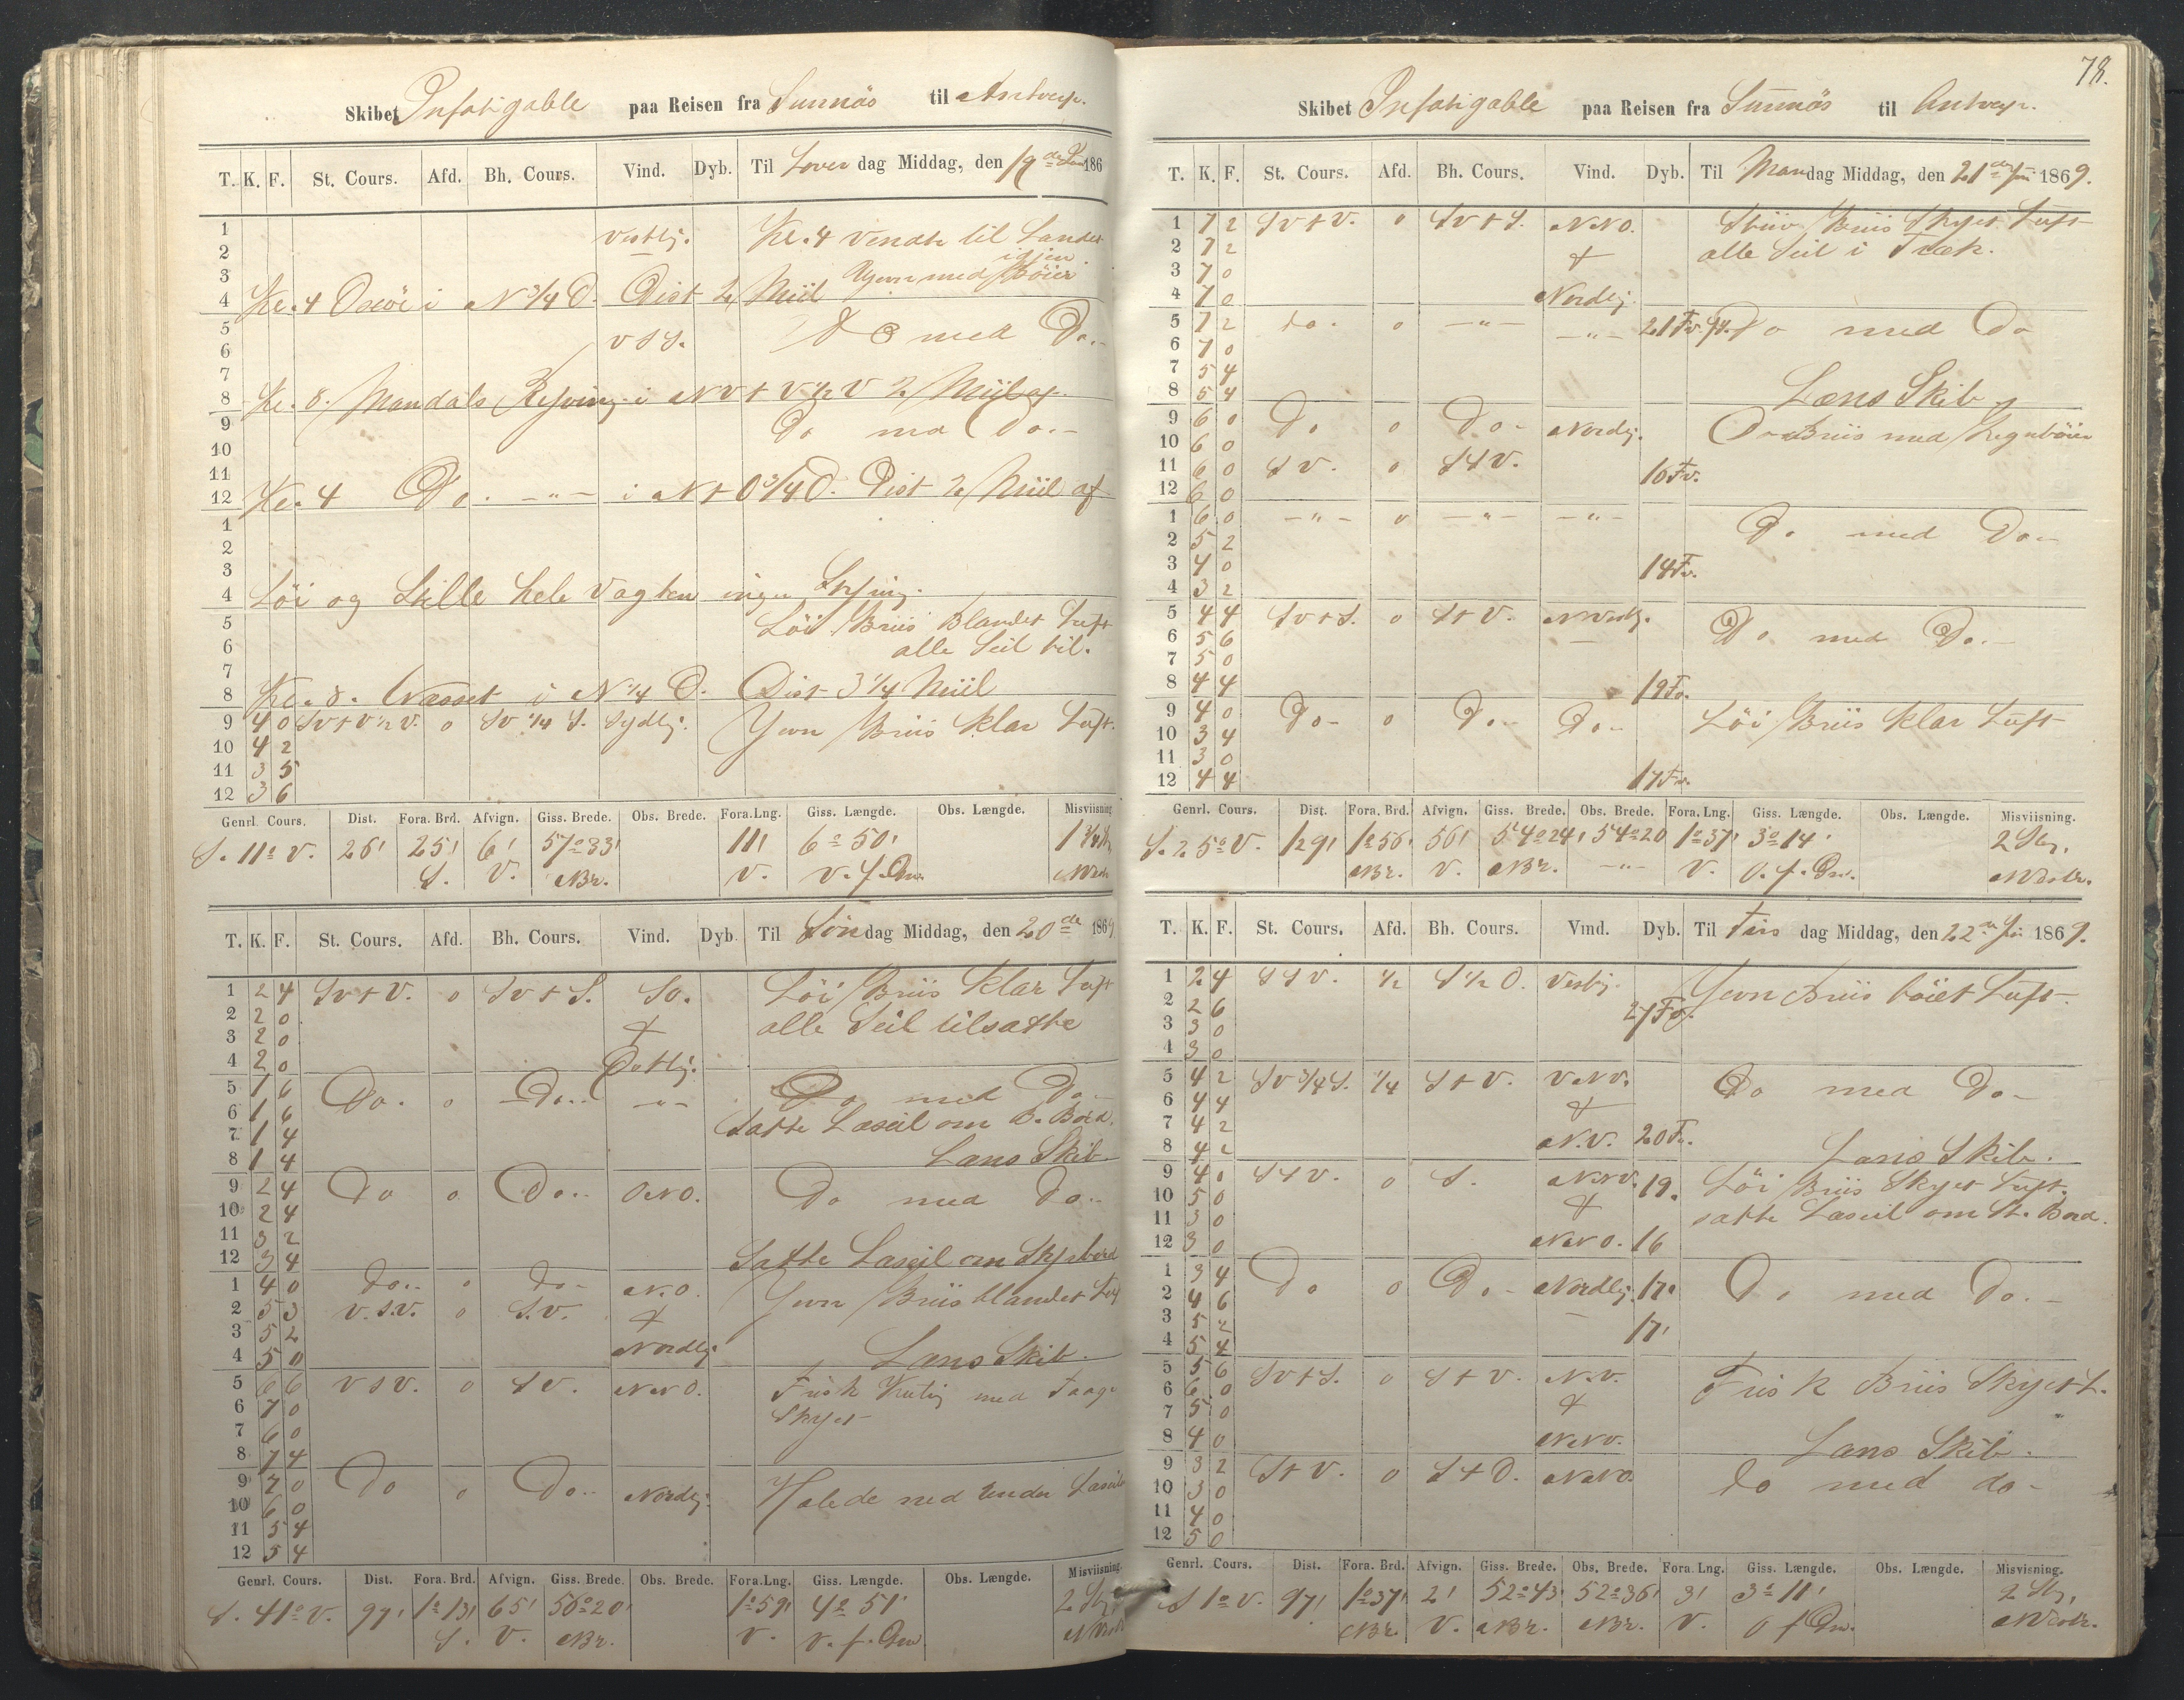 Skibet Infatigable paa Reisen fra Sunnäs til Antverp.
T. K. F. St. Cours. Afd. Bh. Cours. Vind. Dyb. Til Löverdag Middag, den 19de Juni 186
1 Vestlig. Kl. 4 vendte til Landet
2 igjen
3 Bÿer
4 Kl. 4 Oxöe i N 3/4 O. Dist 2 Miil
5 VSV. Do med Do.
6
7
8 Kl. 8. Mandals i NV t V 1/2 V 2 Miil af.
9 Do med Do.
10
11
12 Kl. 4 Do. -"- i N t O 3/4 O. Dist 2 Miil af
1
2
3
4 Löi og Stille hele Vagten ingen Styring.
5 Löi Briis Blandet Luft
6 alle Seil til.
7
8 Kl. 8. Næsset i N 1/4 O. Dist 3 1/4 Miil
9 4 0 SV t V 1/2 V. 0 SV 1/4 S. Sydlig. Jevn Briis Klar Luft.
10 4 2
11 3 5
12 3 6
Genrl. Cours. Dist. Fora. Brd. Afvign. Giss. Brede. Obs. Brede. Fora.Lng. Giss. Længde. Obs. Længde. Misviisning
S. 11° V. 26' 25' 6' 57°33' 11' 6° 50' 1 3/4 St.
S. V. NBr. V. V. f. Grw.
T. K. F. St. Cours. Afd. Bh. Cours. Vind. Dyb. Til Söndag Middag, den 20de 1869
1 2 4 SV t V. 0 SV t S. SO. Löi Briis Klar Luft
2 2 0 alle Seil tilsatte
3 2 0 &
4 2 0 Östlig.
5 1 6 Do. 0 Do.. -"- Do med Do.
6 1 6 Satte Læseil om B. Bord.
7 1 4
8 1 4 Læns Skib
9 2 4 Do 0 Do.. ONO. Do med Do.
10 2 4
11 3 2
12 3 4 Satte Læseil om Styrbord
1 4 0 Do.. 0 Do- N.O. Jevn Briis blandet Luft
2 5 3 V.S.V. 0 S.V. &
3 5 2
4 5 0 Nordlig Læns Skib.
5 6 6 VSV. 0 SV. NNO. Frisk Kuling med Taage
6 7 0 Skyet
7 6 0
8 7 4
9 7 0 Do 0 Do.. Nordlig. Halede ned under Læseil
10 6 0
11 5 4
12 5 4
Genrl. Cours. Dist. Fora. Brd. Afvign. Giss. Brede. Obs. Brede. Fora.Lng. Giss. Længde. Obs. Længde. Misviisning.
S. 41° V. 97' 1° 13' 65' 56°20' 1°59' 4° 51' 2 St.
S. V. NBr. V. V. f. Grw.
78.
Skibet Infatigable paa Reisen fra Sunnäs til Antverp.
T. K. F. St. Cours. Afd. Bh. Cours. Vind. Dyb. Til Mandag Middag, den 21de Juni 1869.
1 7 2 SV t V. 0 SV t S. NNO. Stiiv Briis Skyet Luft
2 7 2 & alle Seil i Træk.
3 7 0
4 7 0 Nordlig.
5 7 2 do. 0 -"- -"- 21 Fv. Do med Do
6 7 0
7 5 4
8 5 4 Læns Skib
9 6 0 Do 0 Do- Nordlig. Briis med Regnbÿer
10 6 0
11 6 0 SV. 0 S t V. 16 Fv.
12 6 0
1 6 0 -"- 0 -"- -"- Do med Do..
2 5 2
3 4 0 14 Fv.
4 3 2
5 4 4 SV t S. 0 S t V. NVestlig. Do med Do.-
6 5 6
7 5 0
8 4 4 19 Fv.
9 4 0 Do- 0 Do- Do- Löi Briis Klar Luft
10 3 4
11 3 0
12 4 4 17 Fv.
Genrl. Cours. Dist. Fora. Brd. Afvign. Giss. Brede. Obs. Brede. Fora.Lng. Giss. Længde. Obs. Længde. Misviisning.
S. 25° V. 129' 1°56' 56' 54°24' 54°20 1°37' 3°14' 2 St.
NBr. V. NBr. -"- V. O. f. Grw. NVestr.
T. K. F. St. Cours. Afd. Bh. Cours. Vind. Dyb. Til Tirsdag Middag, den 22de Juni 1869.
1 2 4 SSV. 1/2 S 1/2 O. Vestlig. Jevn Briis böiet Luft.
2 2 6 27 Fv.
3 3 0
4 3 0
5 4 2 SV 3/4 S. 1/4 S t V. VNV. Do med Do-
6 4 4 &
7 4 2
8 4 2 N.V. 20 Fv. Læns Skib.
9 4 0 S t V. 0 S. NNV. 19. Löi Briis Skyet Luft.
10 5 0 & satte Læseil om St. Bord.
11 3 0
12 3 0 NNO. 16
1 3 4 Do 0 Do- Nordlig. 17. Do med Do.-
2 4 6
3 5 2 17'
4 5 4
5 5 6 SV t S. 0 S t V. N.V. Frisk Briis Skyet L.
6 6 0 &
7 5 0
8 4 0 NNV. Læns Skib.
9 3 2 S t V. 0 S t O. NNO. do med do-
10 3 0
11 4 0
12 5 0
Genrl. Cours. Dist. Fora. Brd. Afvign. Giss. Brede. Obs. Brede. Fora Lng. Giss. Længde. Obs. Længde. Misvisning.
S 1° V. 97' 1°37' 2' 52°43' 52°36' 3' 3° 11' 2 St.
NBr. V. NBr. NBr. V. O f Grw. NVestr.